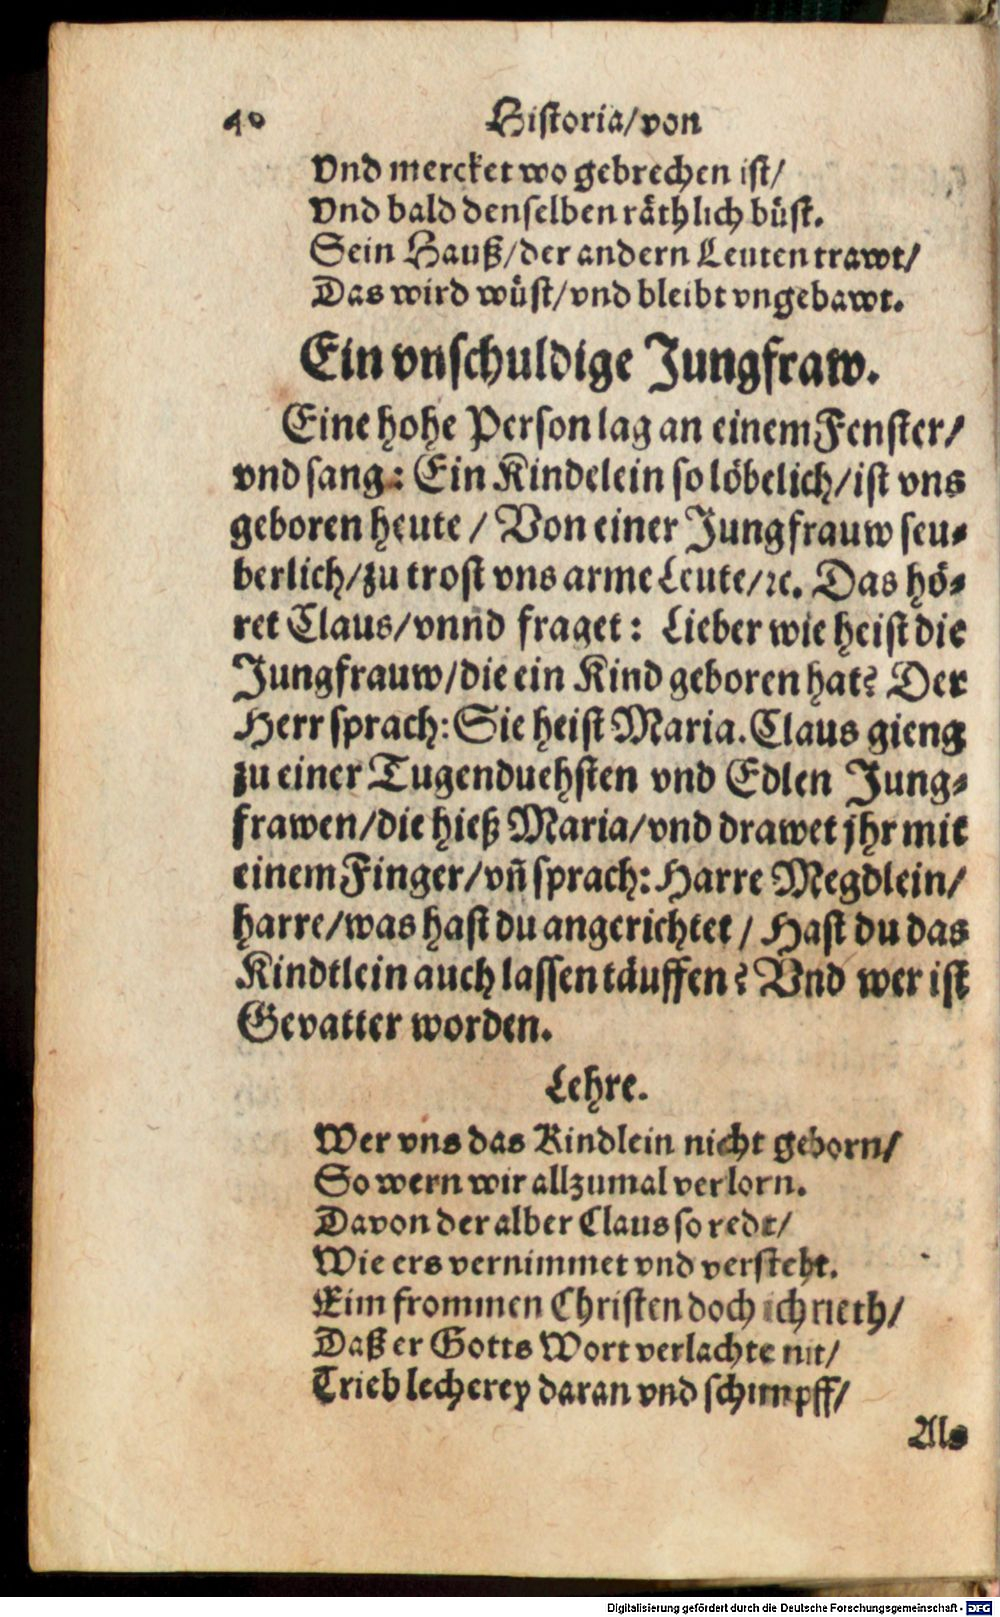 40 Historia/von
Vnd mercket wo gebrechen ist/
Vnd bald denselben räthlich büst.
Sein Hauß/der andern Leuten trawt/
Das wird wüst/vnd bleibt vngebawt.
Ein vnschuldige Jungfraw.
Eine hohe Person lag an einem Fenster/
vnd sang: Ein Kindelein so löbelich/ist vns
geboren heute / Von einer Jungfrauw seu-
berlich/zu trost vns arme Leute/ꝛc. Das hö-
ret Claus/vnnd fraget: Lieber wie heist die
Jungfrauw/die ein Kind geboren hat? Der
Herr sprach: Sie heist Maria. Claus gieng
zu einer Tugenduehsten vnd Edlen Jung-
frawen/die hieß Maria/vnd drawet jhr mit
einem Finger/vñ sprach: Harre Megdlein/
harre/was hast du angerichtet / Hast du das
Kindtlein auch lassen täuffen? Vnd wer ist
Gevatter worden.
Lehre.
Wer vns das Kindlein nicht geborn/
So wern wir allzumal verlorn.
Davon der alber Claus so redt/
Wie ers vernimmet vnd versteht.
Eim frommen Christen doch ich rieth/
Daß er Gotts Wort verlachte nit/
Trieb lecherey daran vnd schimpff/
Als
Digitalisierung gefördert durch die Deutsche Forschungsgemeinschaft - DFG